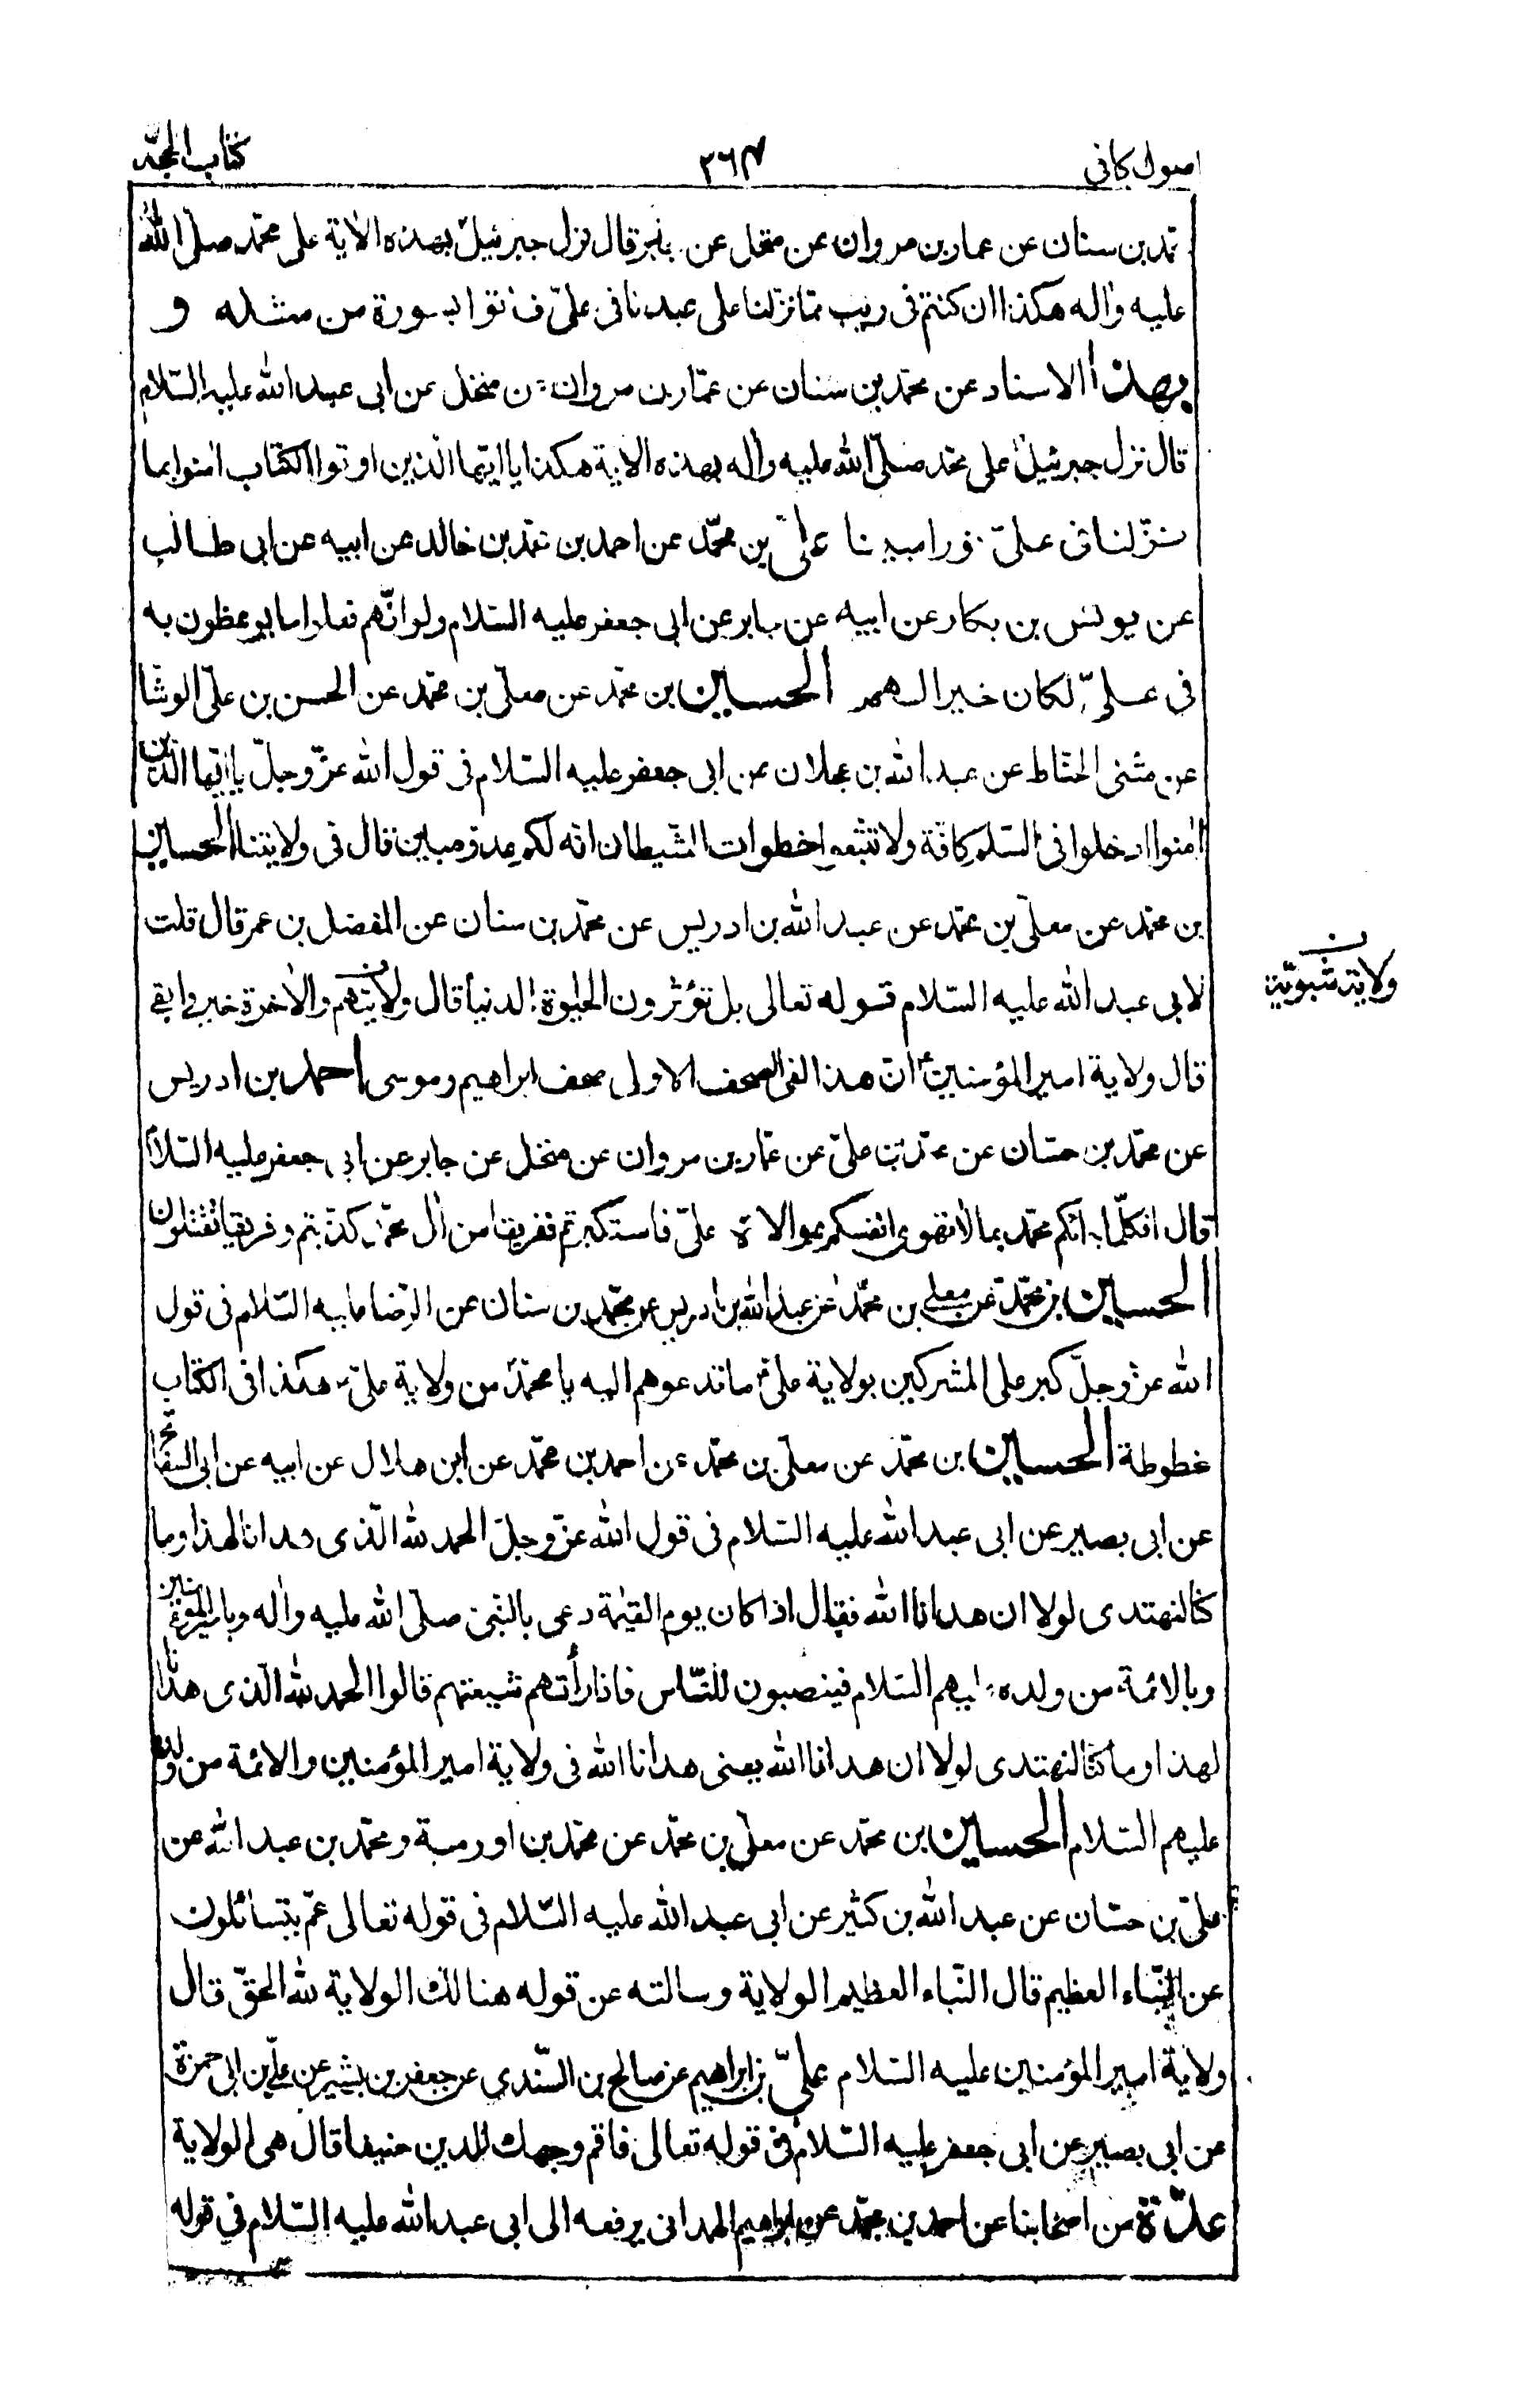 اصول كافى
٢٦٤
كتاب الحجّة
مّد بن سنان عن عمار بن مروان عن منخل عن جابر قال نزل جبرئيل بهذه الاٰية على محمّد صلّى اللّٰه
عليه واٰله هكذا ان كنتم فى ريب ممّا نزّلنا على عبدنا فى علىّ فاتوا بسورة من مثله و
بهذا الاسناد عن محمّد بن سنان عن عمّار بن مروان عن منخل عن ابى عبد اللّٰه عليه السّلام
قال نزل جبرئيل على محمّد صلّى اللّٰه عليه واٰله بهذه الاٰية هكذا يا ايّها الّذين اوتوا الكتاب اٰمنوا بما
نزّلنا فى علىّ نورا مبينا علىّ بن محمّد عن احمد بن محمّد بن خالد عن ابيه عن ابى طالب
عن يونس بن بكار عن ابيه عن جابر عن ابى جعفر عليه السّلام ولو انّهم فعلوا ما يوعظون به
فى علىّ لكان خيرا لهم الحسين بن محمّد عن معلّى بن محمّد عن الحسن بن علىّ الوشا
عن مثنى الحنّاط عن عبد اللّٰه بن عجلان عن ابى جعفر عليه السّلام فى قول اللّٰه عزّ وجلّ يا ايّها الّذين
اٰمنوا ادخلوا فى السّلم كافّة ولا تتّبعوا خطوات الشّيطان انّه لكم عدوّ مبين قال فى ولايتنا الحسين
بن محمّد عن معلّى بن محمّد عن عبد اللّٰه بن ادريس عن محمّد بن سنان عن المفضل بن عمر قال قلت
لابى عبد اللّٰه عليه السّلام قوله تعالى بل تؤثرون الحيٰوة الدنيا قال ولايتهم والاٰخرة خير وابقى
ن
ولاية شبويّة
قال ولاية امير المؤمنين انّ هذا لفى الصحف الاولى صحف ابراهيم وموسى احمد بن ادريس
عن محمّد بن حسّان عن محمّد بن علىّ عن عمّار بن مروان عن منخل عن جابر عن ابى جعفر عليه السّلام
قال افكلّما جائكم محمّد بما لا تهوى انفسكم بموالاة علىّ فاستكبرتم ففريقا من اٰل محمّد كذّبتم وفريقا تقتلون
الحسين بن محمّد عن معلى بن محمّد عن عبد اللّٰه بن ادريس عن محمّد بن سنان عن الرّضا عليه السّلام فى قول
اللّٰه عزّ وجلّ كبر على المشركين بولاية علىّ ما تدعوهم اليه يا محمّد من ولاية علىّ هكذا فى الكتاب
مخطوطة الحسين بن محمّد عن معلّى بن محمّد عن احمد بن محمّد عن ابن هلال عن ابيه عن ابى السّفاتج
عن ابى بصير عن ابى عبد اللّٰه عليه السّلام فى قول اللّٰه عزّ وجلّ الحمد للّٰه الّذى هدانا لهذا وما
كنّا لنهتدى لولا ان هدانا اللّٰه فقال اذا كان يوم القيٰمة دعى بالنّبىّ صلّى اللّٰه عليه واٰله وبامير المؤمنين
وبالائمة من ولده عليهم السّلام فينصبون للنّاس فاذا رأتهم شيعتهم قالوا الحمد للّٰه الّذى هدانا
لهذا وما كنّا لنهتدى لولا ان هدانا اللّٰه يعنى هدانا اللّٰه فى ولاية امير المؤمنين والائمة من ولده
عليهم السّلام الحسين بن محمّد عن معلّى بن محمّد عن محمّد بن اورمة ومحمّد بن عبد اللّٰه عن
علىّ بن حسّان عن عبد اللّٰه بن كثير عن ابى عبد اللّٰه عليه السّلام فى قوله تعالى عمّ يتسائلون
عن النّباء العظيم قال النّباء العظيم الولاية وسالته عن قوله هنالك الولاية للّٰه الحقّ قال
ولاية امير المؤمنين عليه السّلام علىّ بن ابراهيم عن صالح بن السّندى عن جعفر بن بشير عن علىّ بن ابى حمزة
عن ابى بصير عن ابى جعفر عليه السّلام فى قوله تعالى فاقم وجهك للدين حنيفا قال هى الولاية
عدّة من اصحابنا عن احمد بن محمّد عن ابراهيم الهمدانى يرفعه الى ابى عبد اللّٰه عليه السّلام فى قوله